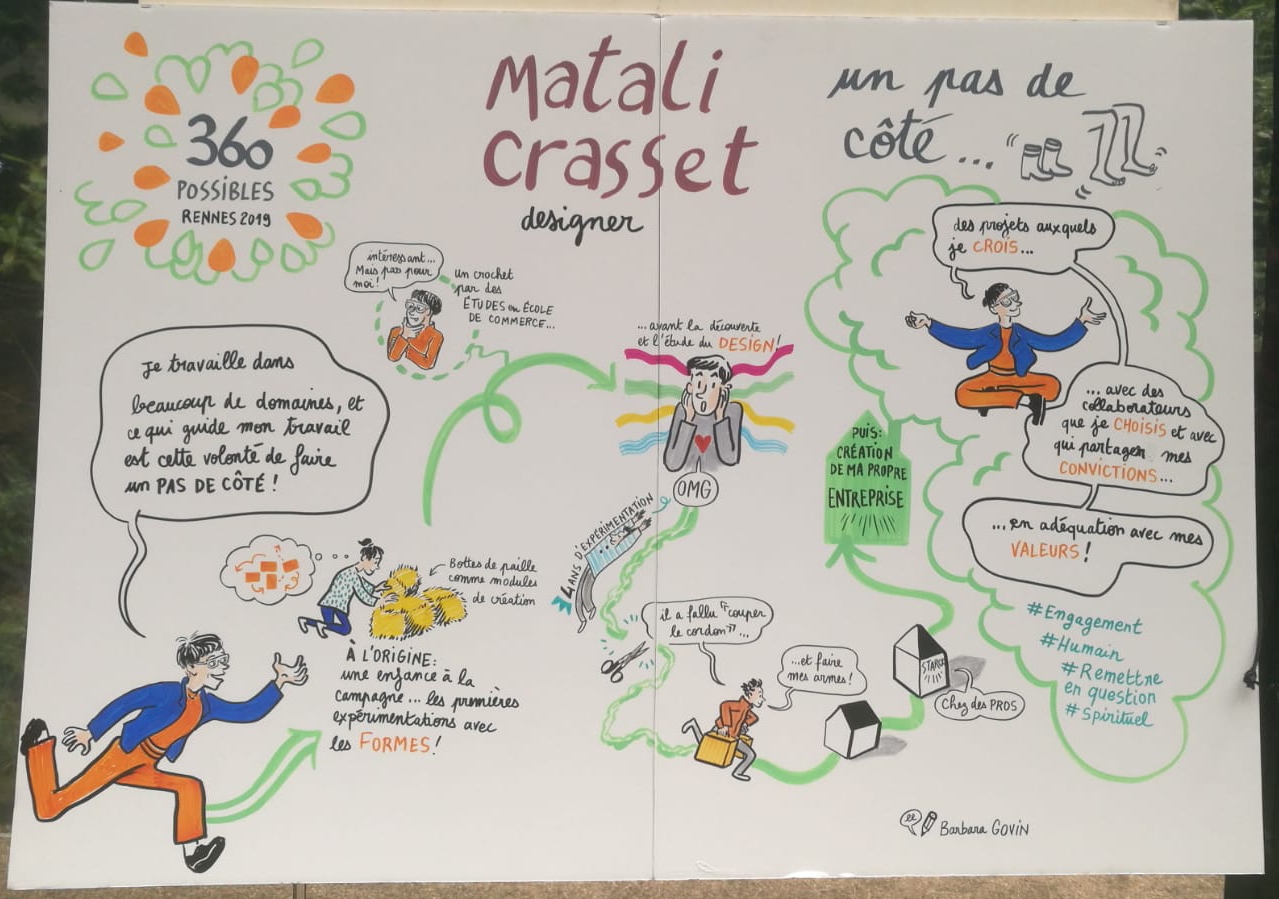 360
POSSIBLES
RENNES 2019
Matali
Crasset
designer
un pas de
côté...
intéressant...
Mais pas pour
moi!
un crochet
par des
ÉTUDES en ÉCOLE
DE COMMERCE...
Je travaille dans
beaucoup de domaines, et
ce qui guide mon travail
est cette volonté de faire
un PAS DE CÔTÉ!
Bottes de paille
comme modules
de création
À L'ORIGINE:
une enfance à la
campagne... les premières
expérimentations avec
les FORMES!
...avant la découverte
et l'étude du DESIGN!
OMG
4 ANS D'EXPÉRIMENTATION
il a fallu "couper
le cordon"...
...et faire
mes armes!
STARCK
Chez des PROS
PUIS:
CRÉATION
DE MA PROPRE
ENTREPRISE
des projets auxquels
je CROIS...
...avec des
collaborateurs
que je CHOISIS et avec
qui partagent mes
CONVICTIONS...
...en adéquation avec mes
VALEURS!
#Engagement
#Humain
#Remettre
en question
#Spirituel
Barbara GOVIN